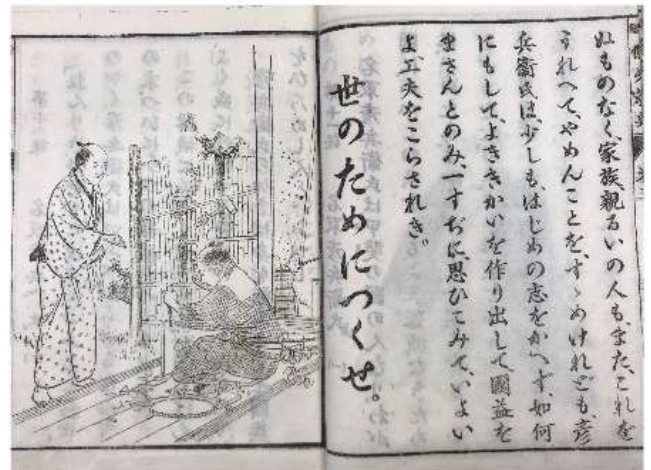 ぬものなく、家族親るいの人も、また、これを
うれへて、やめんことを、すゝめけれども、彦
兵衞氏は、少しも、はじめの志をかへず、如何
にもして、よききかいを作り出して、國益を
まさんとのみ、一すぢに、思ひこみて、いよい
よ、工夫をこらされき。
世のためにつくせ。